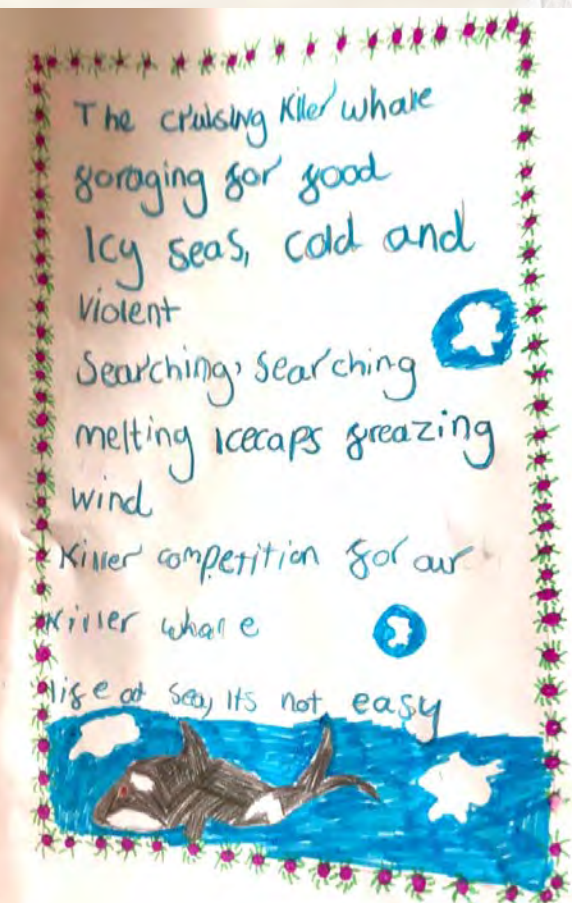 The cruising Killer whale
foraging for food
Icy seas, cold and
violent
Searching, searching
melting icecaps freazing
wind
Killer competition for our
Killer whale
life at sea, its not easy